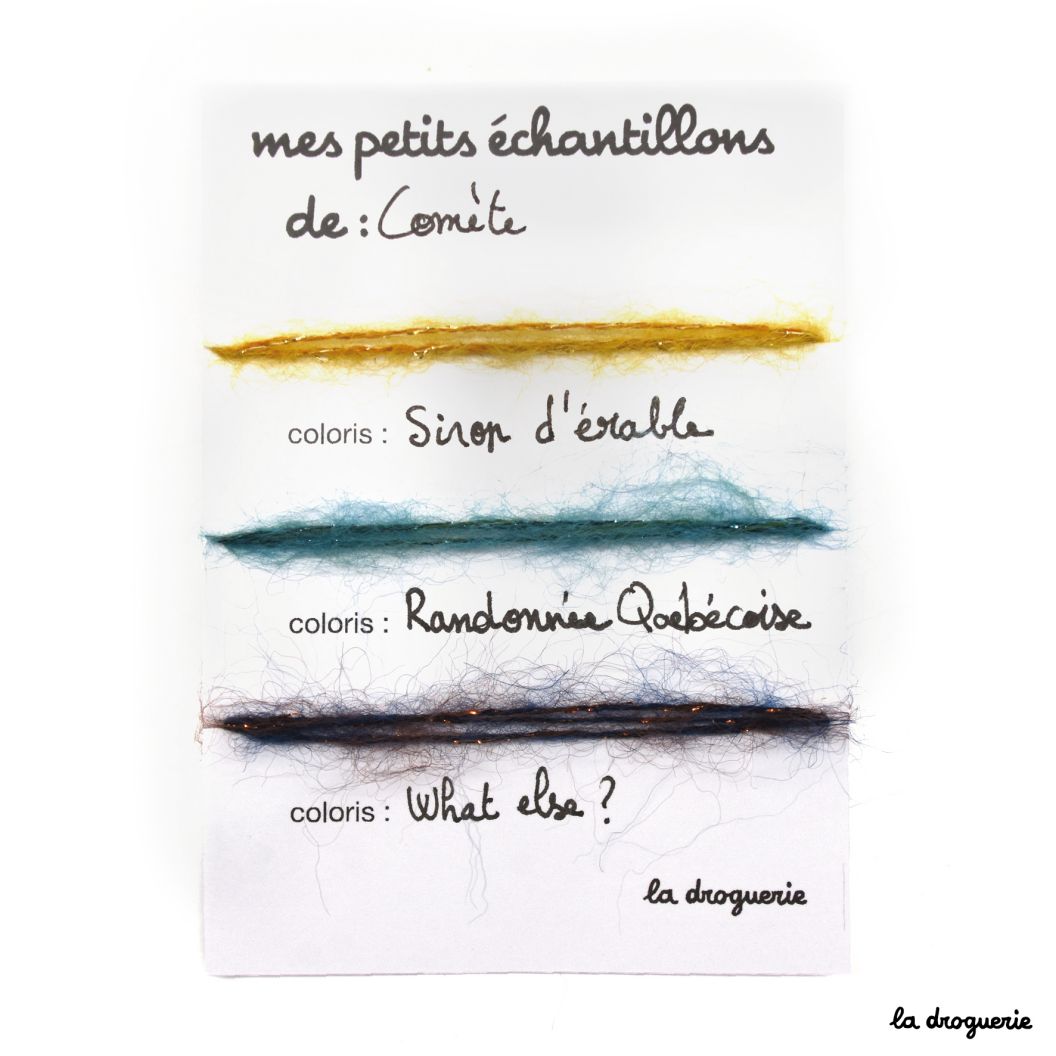 mes petits échantillons
de : Comète
coloris : Sirop d'érable
coloris : Randonnée Québécoise
coloris : What else ?
la droguerie
la droguerie